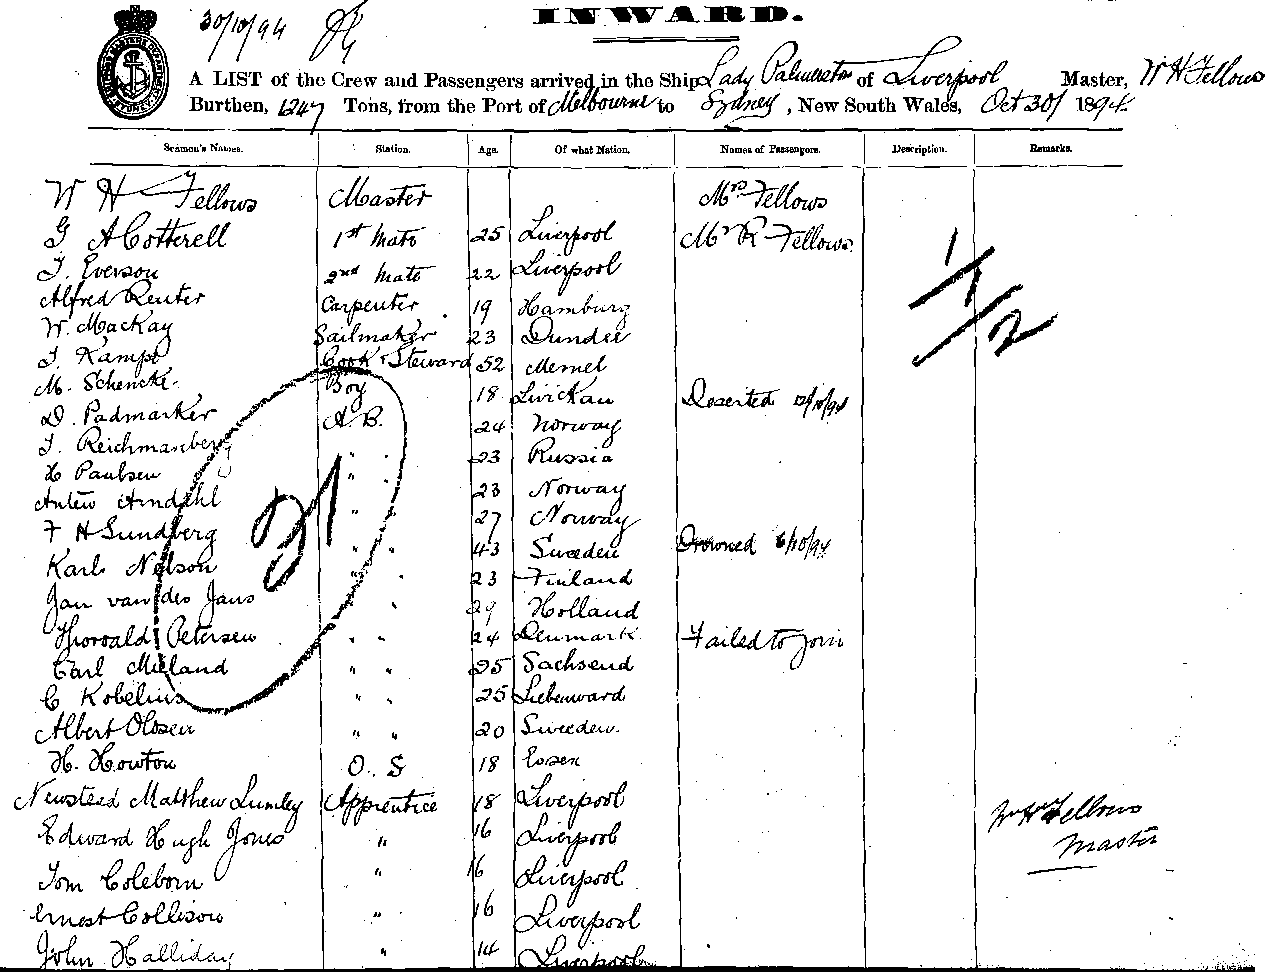 30/10/94
INWARD.
A LIST of the Crew and Passengers arrived in the Ship Lady Palmerston of Liverpool Master, W H Fellows
Burthen, 1247 Tons, from the Port of Melbourne to Sydney, New South Wales, Oct 30/ 1894
Seamen's Names. Station. Age. Of what Nation. Names of Passengers. Description. Remarks.
W H Fellows Master Mrs Fellows
G A Cotterell 1st Mate 25 Liverpool Mr R Fellows
J. Everson 2nd Mate 22 Liverpool
Alfred Reuter Carpenter 19 Hamburg
W. MacKay Sailmaker 23 Dundee
J. Kampt Cook & Steward 52 Memel
M. Schencke Boy 18 Zwickau Deserted 12/10/94
D. Padmarker A.B. 24 Norway
J. Reichmanberg " " 23 Russia
H Paulsen " " 23 Norway
Anton Arndahl " " 27 Norway
F H Sundberg " " 43 Sweeden Drowned 6/10/94
Karl Nelson " " 23 Finland
Jan van des Jans " " 29 Holland
Thorvald Petersen " " 24 Denmark Failed to join
Carl Mieland " " 25 Sachsend
C Kobelius " " 25 Liebenward
Albert Olosen " " 20 Sweeden.
H. Howton O. S 18 Essen
Newsteed Matthew Lumley Apprentice 18 Liverpool
Edward Hugh Jones " 16 Liverpool
Tom Coleborn " 16 Liverpool
Ernest Collison " 16 Liverpool
John Halliday " 14 Liverpool
21
1/1/2
W H Fellows
Master